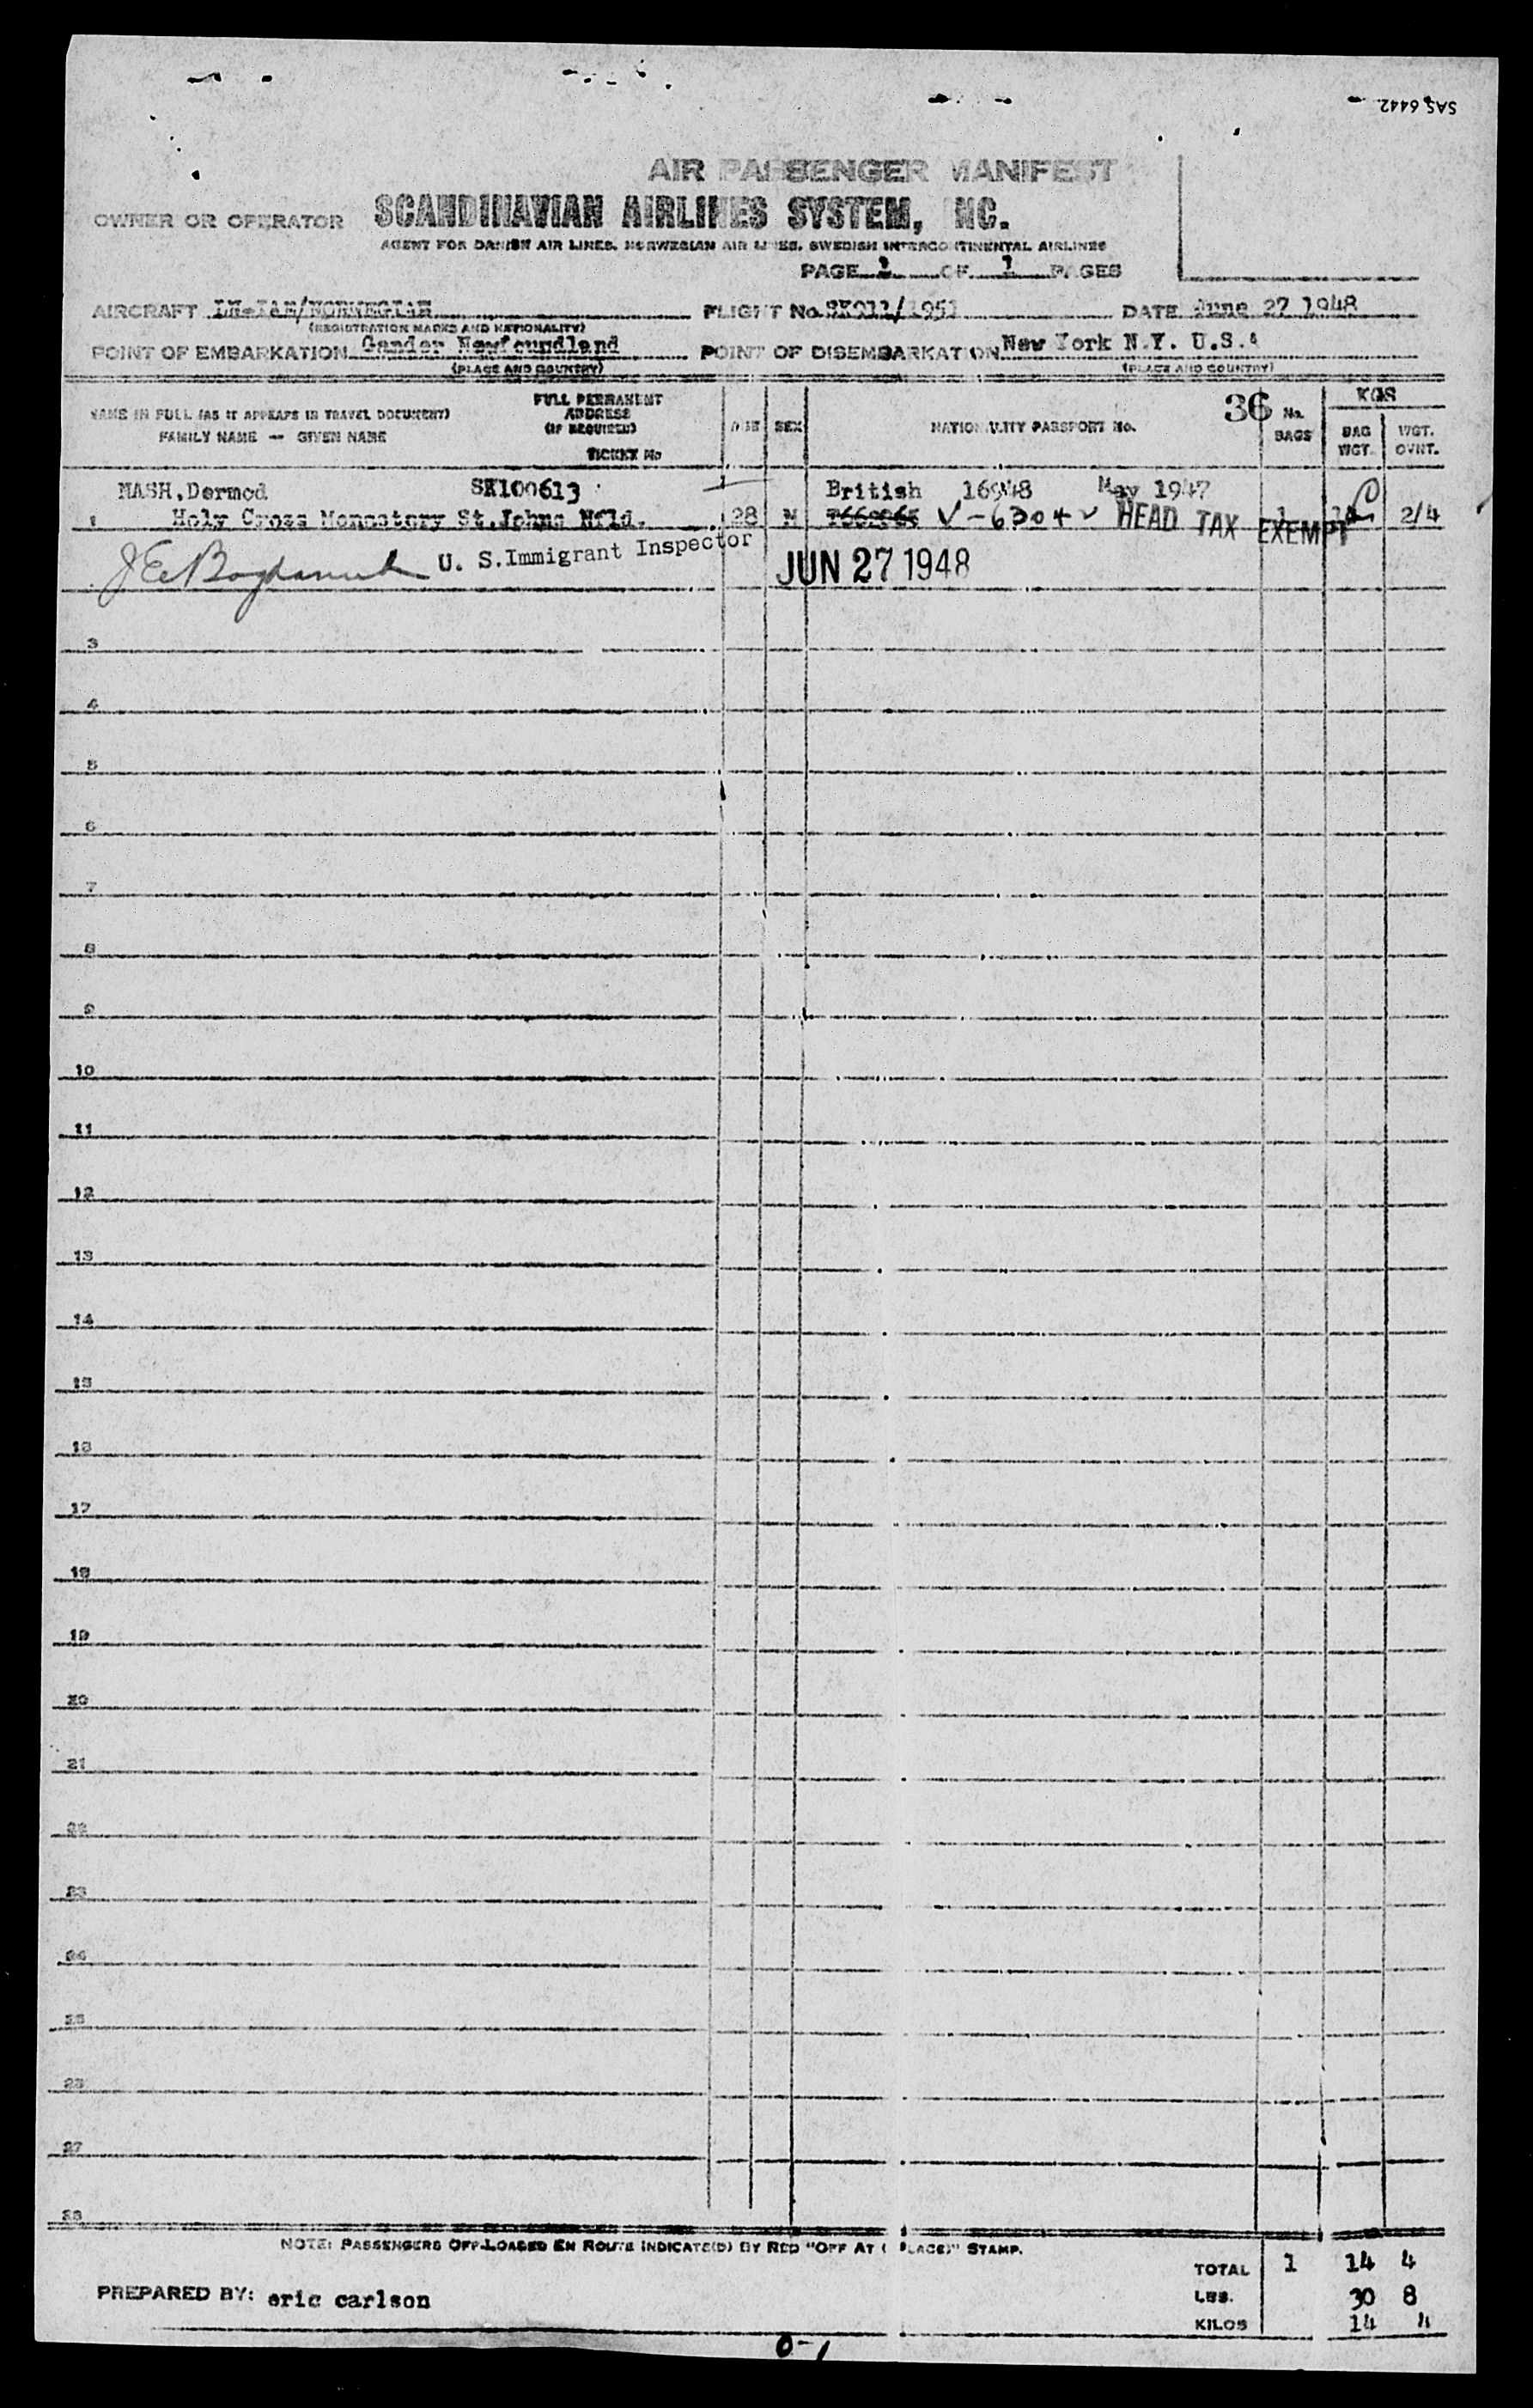 SAS 6442
AIR PASSENGER MANIFEST
OWNER OR OPERATOR SCANDINAVIAN AIRLINES SYSTEM, INC.
AGENT FOR DANISH AIR LINES, NORWEGIAN AIR LINES, SWEDISH INTERCONTINENTAL AIRLINES
PAGE 1 OF 1 PAGES
AIRCRAFT /NORWEGIAN FLIGHT No. SK911/1951 DATE June 27 1948
(REGISTRATION MARKS AND NATIONALITY)
POINT OF EMBARKATION Gander Newfoundland POINT OF DISEMBARKATION New York N.Y. U.S.A
(PLACE AND COUNTRY) (PLACE AND COUNTRY)
NAME IN FULL (AS IT APPEARS IN TRAVEL DOCUMENT)
FAMILY NAME — GIVEN NAME
FULL PERMANENT
ADDRESS
(IF REQUIRED)
TICKET No
AGE SEX NATIONALITY PASSPORT No. 36 No.
BAGS
KGS
BAG
WGT.
WGT.
OVWT.
NASH, Dermod SK100613 British 16948 May 1947
1 Holy Cross Monastery St. Johns Nfld. 28 M V-63042 HEAD TAX EXEMPT 1 14 2/4
U. S. Immigrant Inspector JUN 27 1948
3
4
5
6
7
8
9
10
11
12
13
14
15
16
17
18
19
20
21
22
23
24
25
26
27
28
NOTE: PASSENGERS OFF-LOADED EN ROUTE INDICATE(D) BY RED "OFF AT (PLACE)" STAMP.
TOTAL 1 14 4
PREPARED BY: eric carlson
LBS. 30 8
KILOS 14 4
0-1